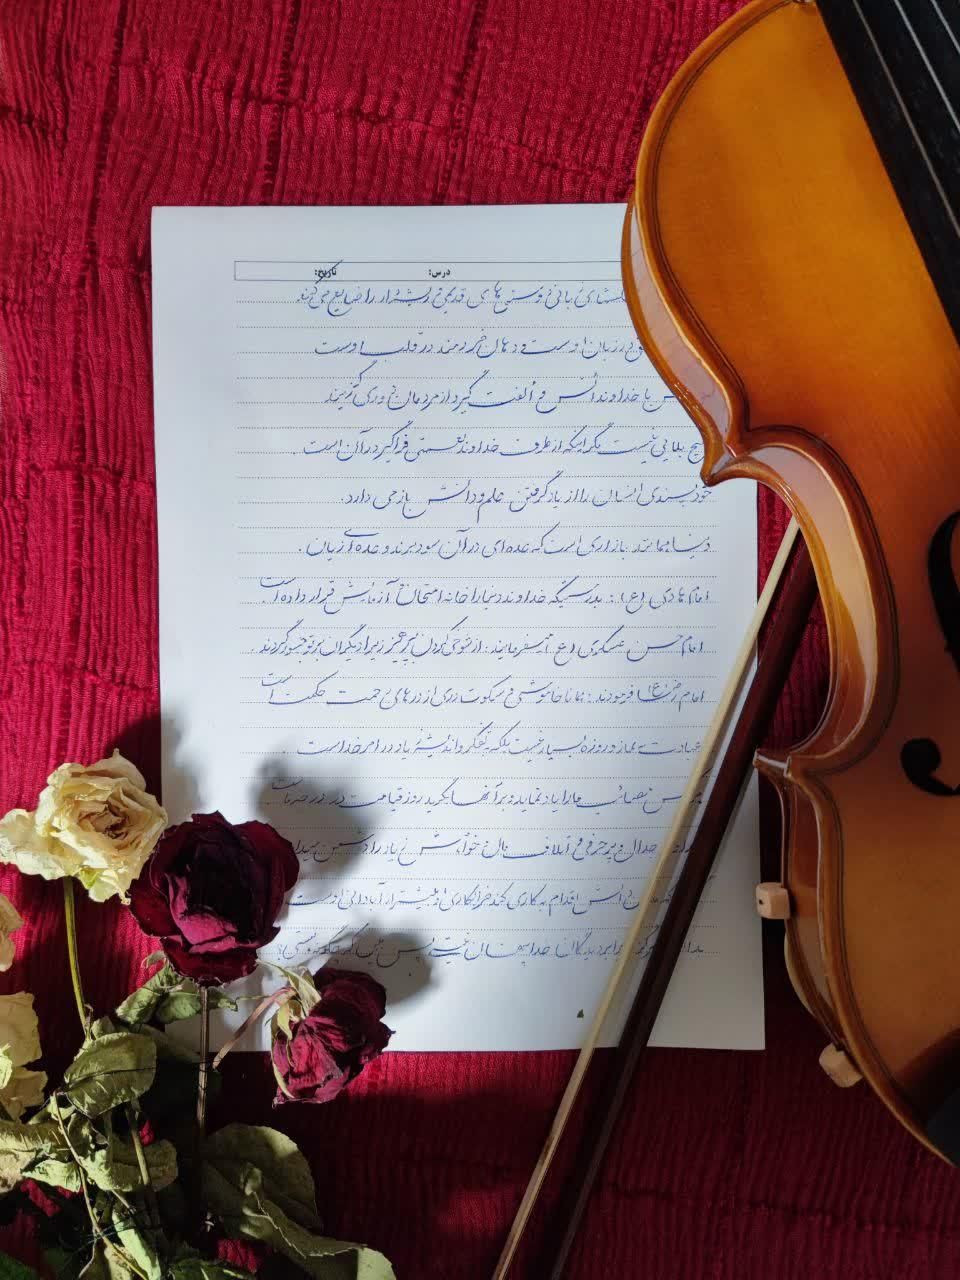 درس: تاریخ:
زبانی و سستی های قدیمی و ریشه دار را ضایع می کند
زبان اوست و دهان خردمند در قلب اوست
با خداوند انس و الفت گیرد از مردمان دوری گزیند
بلایی نیست مگر اینکه از طرف خداوند نعمتی فراگیر در آن است.
خودپسندی انسان را از یاد گرفتن علم و دانش باز می دارد.
دنیا همانند بازاری است که عده ای در آن سود برند و عده ای زیان.
امام هادی (ع): بدرستیکه خداوند دنیا را خانه امتحان و آزمایش قرار داده است
امام حسن عسکری (ع) میفرمایند: از شوخی کردن بپرهیز زیرا دیگران بر تو جسور گردند.
امام رضا (ع) فرمودند: همانا خاموشی و سکوت دری از درهای حکمت است
عبادت به نماز و روزه بسیار نیست بلکه به تفکر و اندیشه زیاد در امر خداست.
مصائب ما را یاد نماید و بر آنها بگرید روز قیامت در درجه ماست
جدال و پرحرفی و اتلاف مال و خواهش زیاد را دشمن
دانش اقدام به کاری کند خرابکاری او بیشتر از آبادانی اوست
خدا پنهان نیست پس ببین که چگونه هستی؟